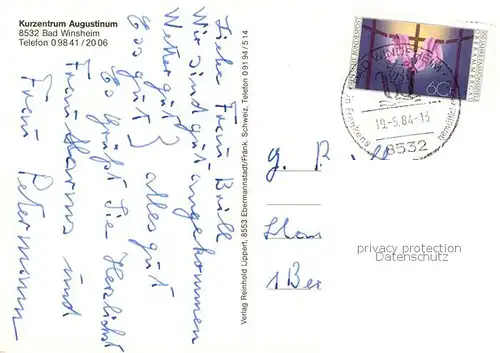 Kurzentrum Augustinum
8532 Bad Winsheim
Telefon 0 98 41 / 20 06
Liebe Frau Brill
Wir sind gut angekommen
Wetter gut
Ess gut } alles gut
Es grüßt Sie Herzlichst
Frau und
Frau Petermann
Verlag Reinhold Lippert, 8553 Ebermannstadt/Fränk. Schweiz, Telefon 0 91 94 / 5 14
DEUTSCHE BUNDESPOST
OBERAMMERGAU
60
BAD WINDSHEIM
in Frankens
19.-5.84-13
8532
privacy protection
Datenschutz